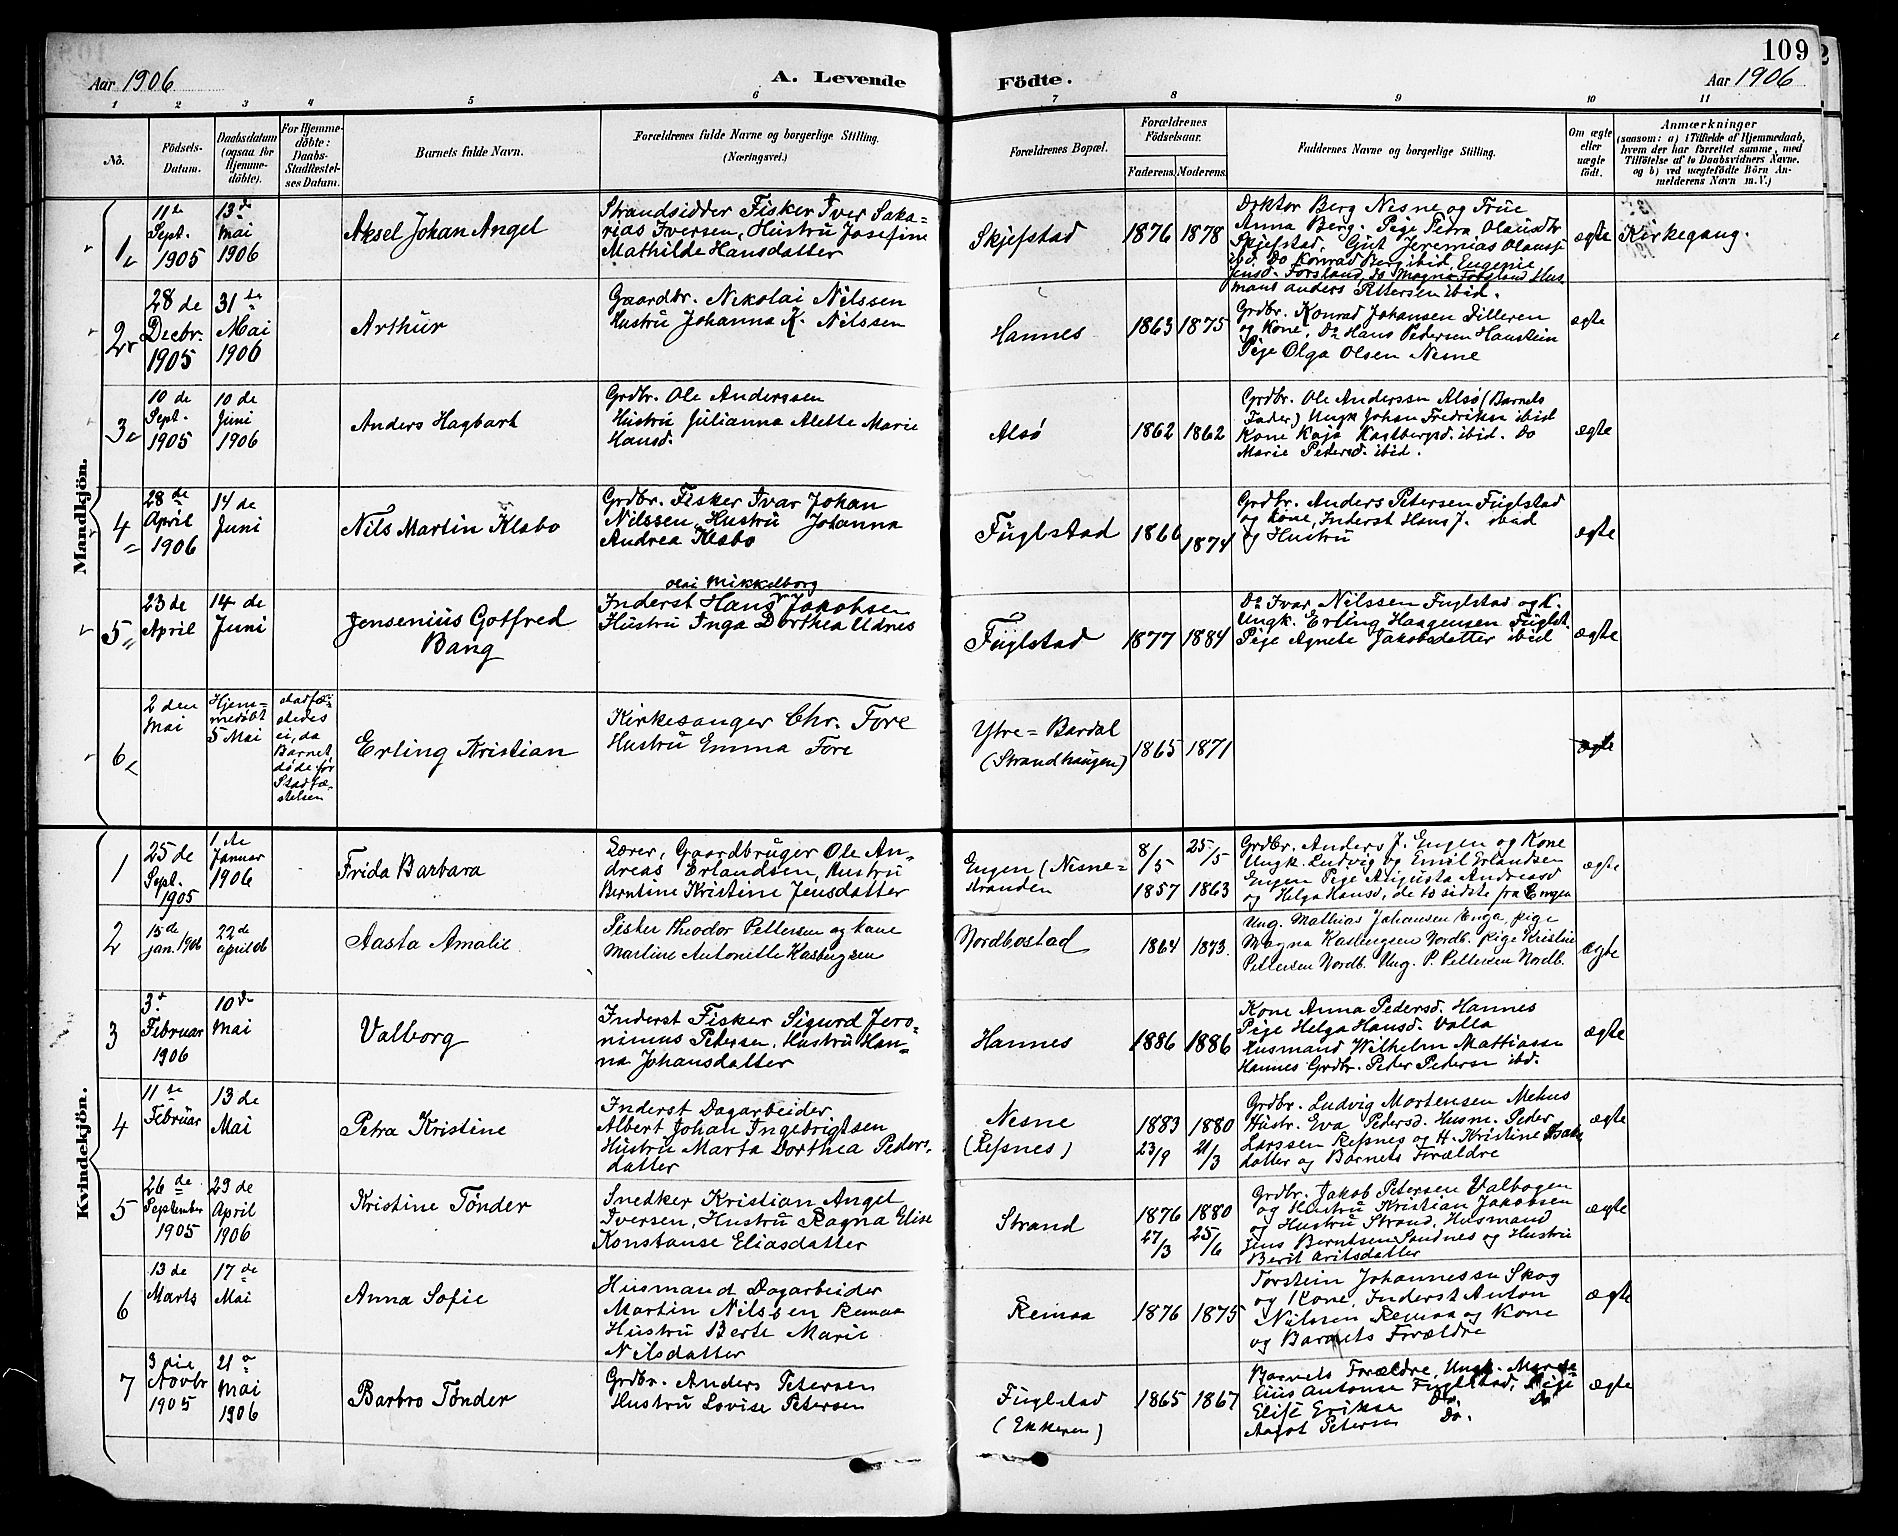 109
Aar 1906
A. Levende Födte.
Aar 1906
1 2 3 4 5 6 7 8 9 10 11
No.
Födsels-
Datum.
Daabsdatum
(ogsaa for
Hjemme-
döbte).
For Hjemme-
döbte:
Daabs-
Stadfæstel-
ses Datum.
Barnets fulde Navn.
Forældrenes fulde Navne og borgerlige Stilling.
(Næringsvei.)
Forældrenes Bopæl.
Forældrenes
Födselsaar.
Faderens. Moderens.
Faddernes Navne og borgerlige Stilling.
Om ægte
eller
uægte
födt.
Anmærkninger
(saasom: a) i Tilfælde af Hjemmedaab,
hvem der har forrettet samme, med
Tilföielse af to Daabsvidners Navne.
og b) ved uægtefödte Börn An-
melderens Navn m. V.)
Mandkjön.
1
11te
Sept.
1905
13de
Mai
1906
Aksel Johan Angel
Strandsidder Fisker Iver Saka-
rias Iversen, Hustru Josefine
Mathilde Hansdatter
Skjefstad
1876 1878
Doktor Berg Nesne og Frue
Anna Berg. Pige Petra Olausdtr
Skjefstad. Gut Jeremias Olauss
ibd. Do Konrad Berg ibid. Eugenie
Jensd. Forsland, do Magna Forsland Hus
mand Anders Pettersen ibid.
ægte
Kirkegang.
2
28 de
Decbr.
1905
31te
Mai
1906
Arthur
Gaardbr. Nikolai Nilssen
Hustru Johanna K. Nilssen
Hannes
1863 1875
Grdbr. Konrad Johansen Tilleren
og Kone, Do Hans Pedersen Haustein
Pige Olga Olsen Nesne
ægte
3
10 de
Sept.
1905
10 de
Juni
1906
Anders Hagbart
Grdbr. Ole Anderssen
Hustru Julianna Alette Marie
Hansd.
Alsø
1862 1862
Grdbr. Ole Anderssen Alsø (Barnets
Fader) Ungk Johan Fredriksn ibid
Kone Kaja Kastbergsd. ibid. Do
Marie Pedersd. ibid.
ægte
4
28de
April
1906
14 de
Juni
Nils Martin Klabo
Grdbr. Fisker Ivar Johan
Nilssen, Hustru Johanna
Andrea Klabo
Fuglstad
1866 1874
Grdbr. Anders Petersen Fuglstad
og Kone, Inderst Hans J. ibid
og Hustru
ægte
5
23 de
April
14 de
Juni
Jensenius Gotfred
Bang
Olai Mikkelborg
Inderst Hans Jakobsen
Hustru Inga Dorthea Udnes
Fuglstad
1877 1884
Do Ivar Nilssen Fuglstad og K.
Ungk. Erling Haagensen Fuglst.
Pige Agnete Jakobsdatter ibid
ægte
6
2 den
Mai
Hjem-
medøbt
5 Mai
stadfæ-
stedes
ei, da
Barnet
døde før
Stadfæ-
stelsen
Erling Kristian
Kirkesanger Chr. Fore
Hustru Emma Fore
Ytre=Bardal
(Strandhaugen)
1865 1871
ægte
Kvindekjön.
1
25 de
Sept.
1905
1.ste
Januar
1906
Frida Barbara
Lærer, Gaardbruger Ole An-
dreas Erlandsen, Hustru
Berntine Kristine Jensdatter
Engen (Nesne-
stranden
8/5 1857
25/5 1863
Grdbr. Anders J. Engen og Kone
Ungk. Ludvig og Emil Erlandsen
Engen Pige Augusta Andreasd
og Helga Hansd, de to sidste fra Engen
ægte
2
15de
jan. 1906
22de
april 06
Aasta Amalie
Fisker Theodor Pettersen og kone
Martine Antonette Kasbergsen
Nordbostad
1864 1873.
Ung. Mathias Johansen Enga, pige
Magna Kasbergsen Nordb. pige Kristine
Pettersen Nordb. Ung. P. Pettersen Nordb.
ægte
3
3d
Februar
1906
10de
Mai
Valborg
Inderst Fisker Sigurd Jero-
nimus Petersen, Hustru Han-
na Johansdatter
Hannes
1886 1886
Kone Anna Pedersd. Hannes
Pige Helga Hansd. Valla
Husmand Wilhelm Mattiassn
Hannes Grdbr. Peder Pedersn ibd.
ægte
4
11te
Februar
13 de
Mai
Petra Kristine
Inderst Dagarbeider
Albert Johan Ingebrigtsen
Hustru Marta Dorthea Peders-
datter
Nesne
(Repnes)
1883 23/9
1880 21/3
Grdbr. Ludvig Mortensen Mehus
Hustr. Eva Pedersd. Husm. Peder
Larssen Repnes og H. Kristine Isaks
datter og Barnets Forældre
ægte
5
26de
September
1905
29 de
April
1906
Kristine Tønder
Snedker Kristian Angel
Iversen, Hustru Ragna Elise
Konstanse Eliasdatter
Strand
1876 27/3
1880 25/6
Grdbr. Jakob Petersen Valbogen
og Hustru Kristian Jakobsen
og Hustru Strand, Husmand
Jens Berntsen Sandnes og Hustru
Berit Aritsdatter
ægte
6
13 de
Marts
17 de
Mai
Anna Sofie
Husmand Dagarbeider
Martin Nilssen Remaa
Hustru Berte Marie
Nilsdatter
Remaa
1876 1875
Torstein Johannessn Skog
og Kone, Inderst Anton
Nilssen Remaa og Kone
og Barnets Forældre
ægte
7
3 die
Novbr
1905
21
Mai
1906
Barbro Tønder
Grdbr. Anders Petersen
Hustru Lovise Petersen
Fuglstad
(Ekkeren)
1865 1867
Barnets Forældre, Ungk. Marse-
lius Antonsn Fuglstad, Pige
Elise Eriksn Do
Aagot Petersen Do.
ægte